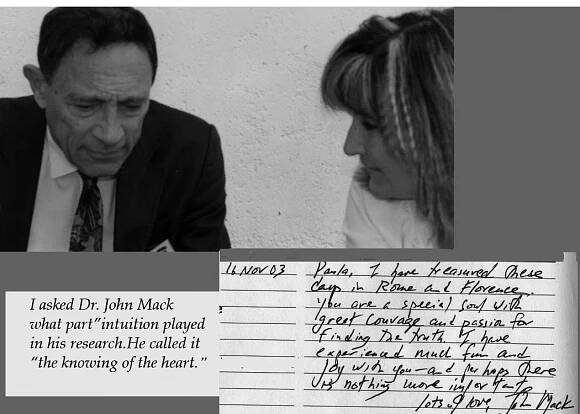 I asked Dr. John Mack
what part"intuition played
in his research.He called it
"the knowing of the heart."
16 Nov 03 Paula, I have treasured these
days in Rome and Florence.
You are a special soul with
great courage and passion for
finding the truth. I have
experienced much fun and
joy with you—and perhaps there
is nothing more important.
lots of love, John Mack